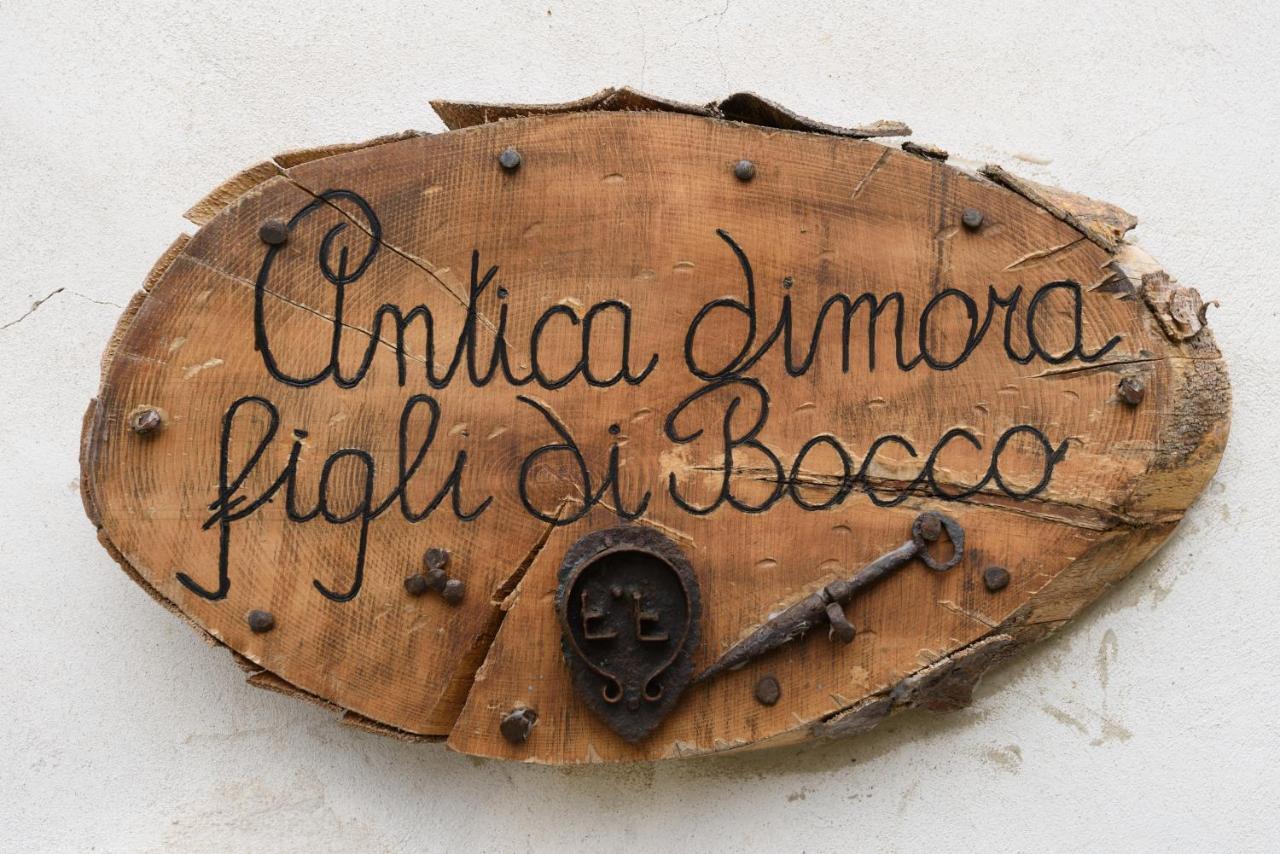 Antica dimora
figli di Bocco
E E